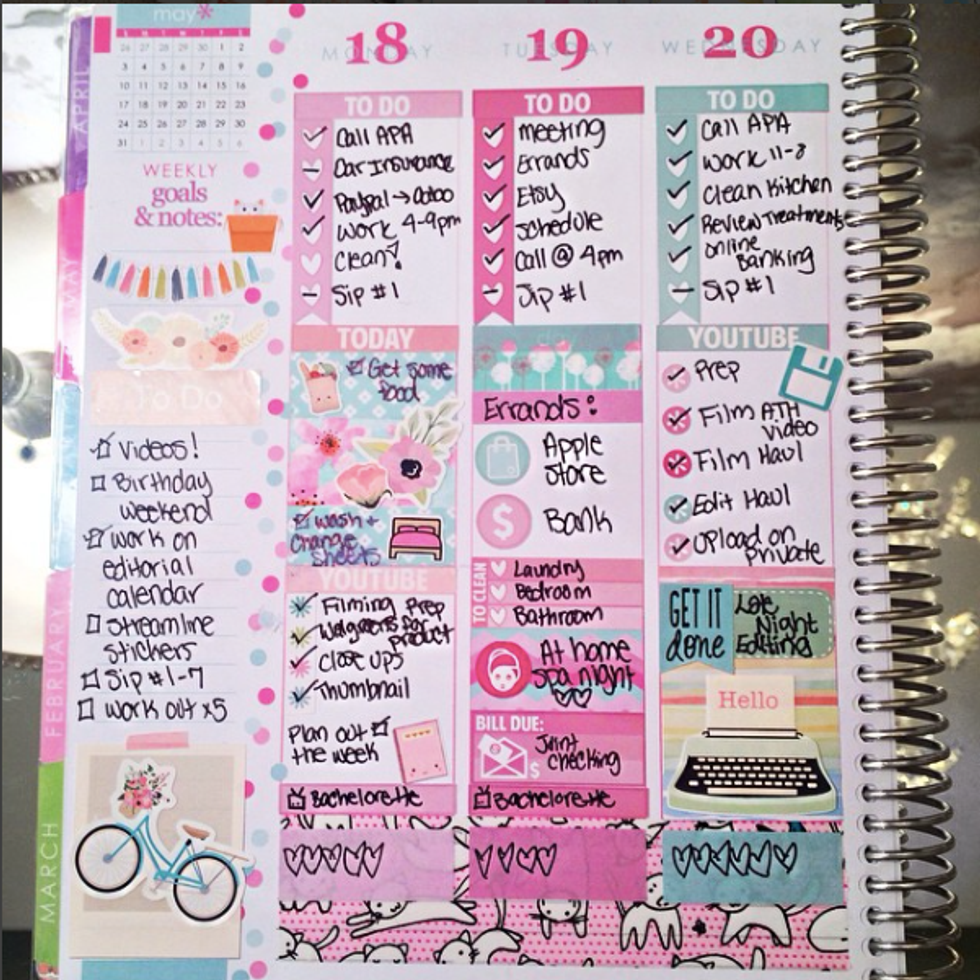 may*
S M T W T F S
26 27 28 29 30 1 2
3 4 5 6 7 8 9
10 11 12 13 14 15 16
17 18 19 20 21 22 23
24 25 26 27 28 29 30
31 1 2 3 4 5 6
APRIL
MAY
FEBRUARY
MARCH
WEEKLY
goals
& notes:
To Do
Videos!
Birthday
weekend
Work on
editorial
calendar
Streamline
stickers
Sip #1-7
Work out x5
18
MONDAY
TO DO
Call APA
Car Insurance
Paypal →
Work 4-9pm
Clean!
Sip #1
TODAY
Get some
food
wash +
change
sheets
YOUTUBE
Filming Prep
Walgreens for
product
Close ups
Thumbnail
Plan out
the week
Bachelorette
19
TUESDAY
TO DO
meeting
Errands
Etsy
Schedule
Call @ 4pm
Sip #1
Errands:
Apple
Store
$
Bank
TO CLEAN
Laundry
Bedroom
Bathroom
At home
spa night
BILL DUE:
$
Joint
checking
Bachelorette
20
WEDNESDAY
TO DO
Call APA
Work 11-8
Clean Kitchen
Review Treatments
Online
Banking
Sip #1
YOUTUBE
Prep
Film ATH
video
Film Haul
Edit Haul
Upload on
private
GET IT
done
Late
Night
Editing
Hello